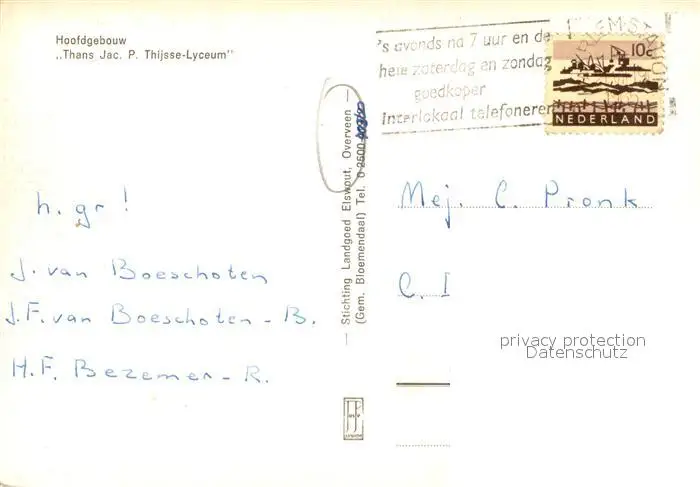 Hoofdgebouw
„Thans Jac. P. Thijsse-Lyceum"
's avonds na 7 uur en de
hele zaterdag en zondag
goedkoper
interlokaal telefoneren
HAARLEM-STATION
10c
NEDERLAND
— Stichting Landgoed Elswout, Overveen —
(Gem. Bloemendaal) Tel. 0 2500
h. gr!
J. van Boeschoten
J.F. van Boeschoten - B.
H.F. Bezemer - R.
Mej. C. Pronk
C. I
privacy protection
Datenschutz